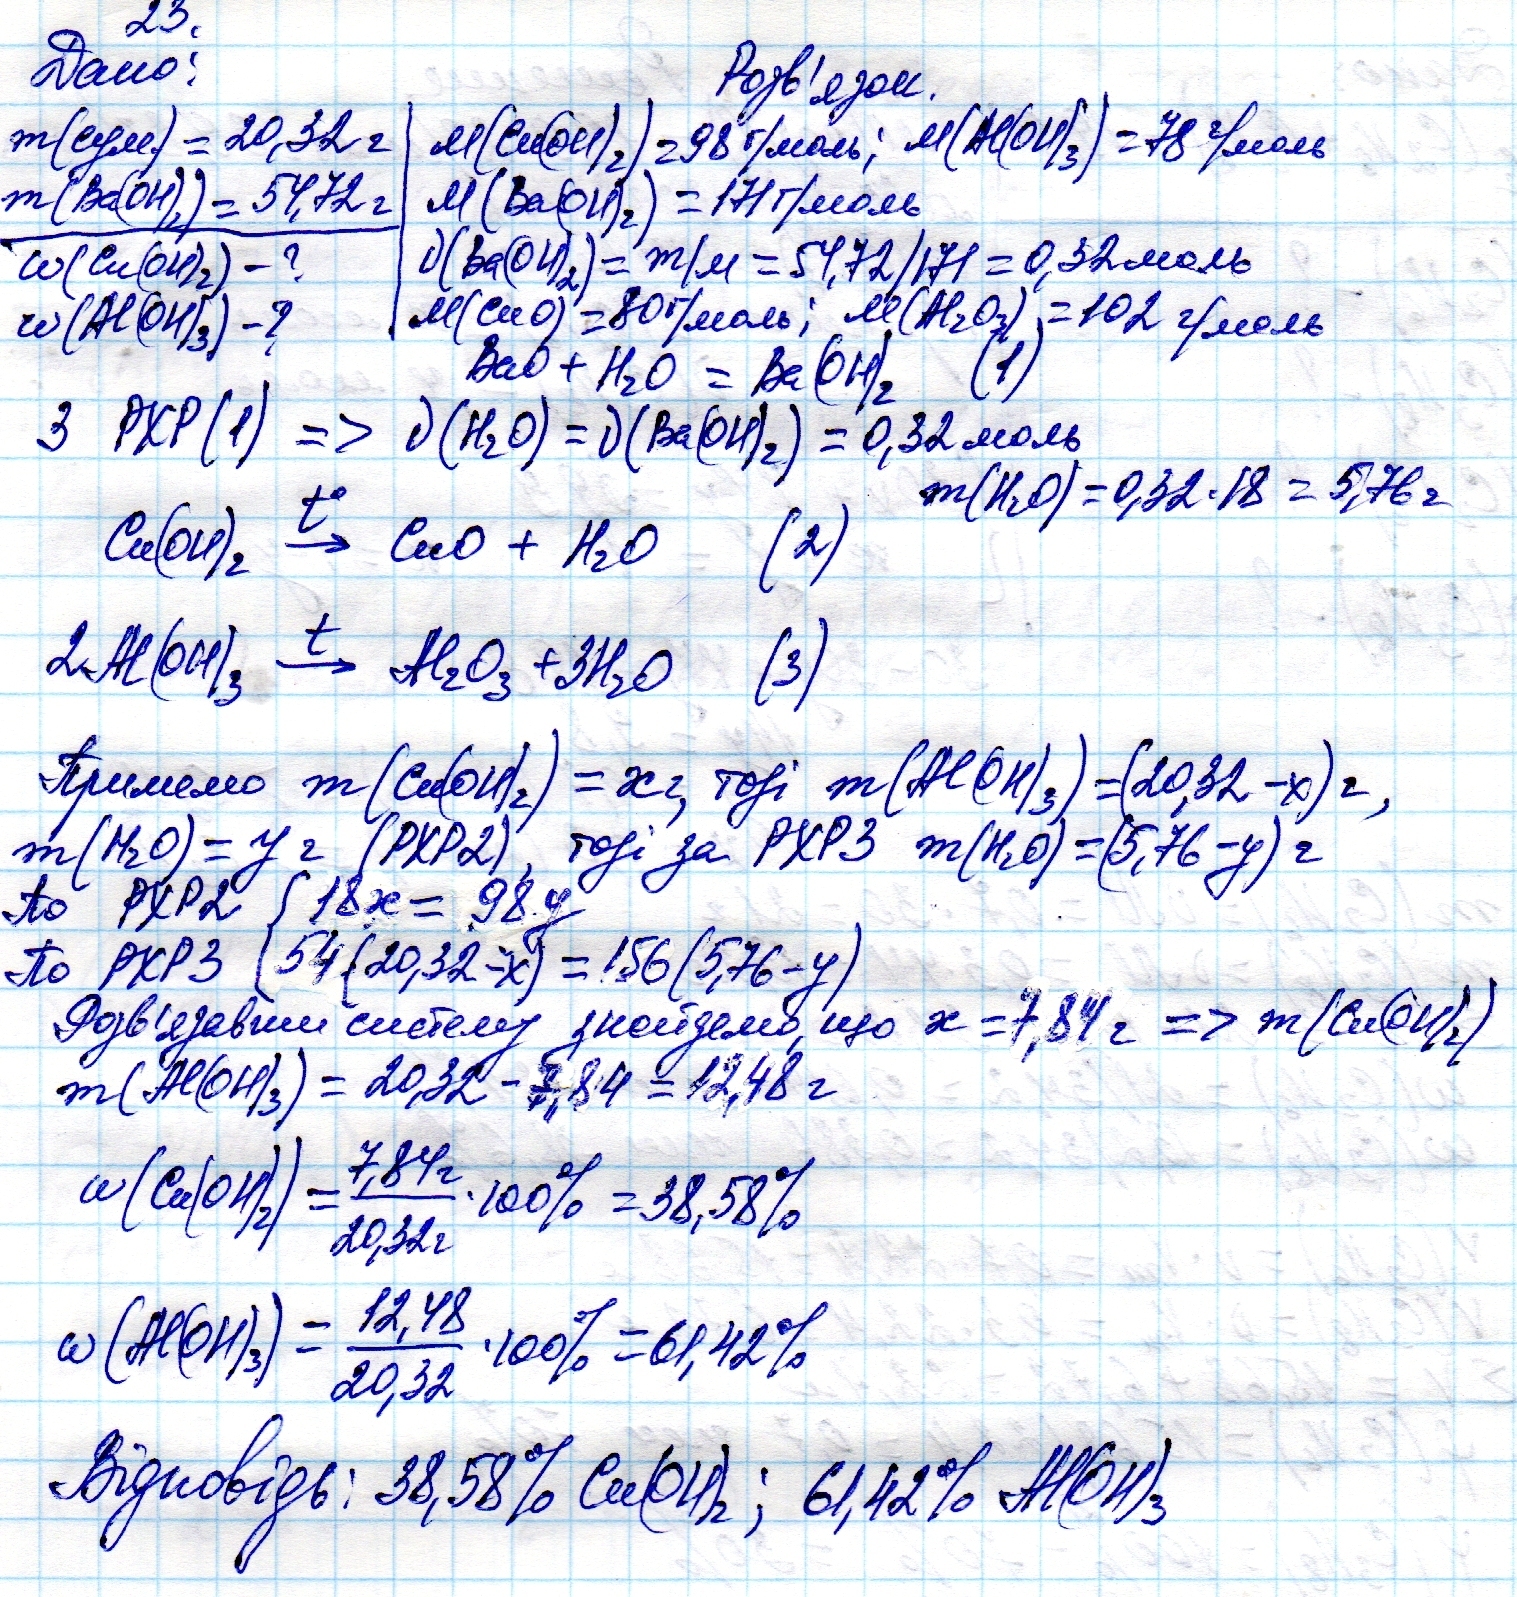 23.
Дано:
Розв'язок.
m(сум) = 20,32 г
m(Ba(OH)₂) = 54,72 г
w(Cu(OH)₂) - ?
w(Al(OH)₃) - ?
M(Cu(OH)₂) = 98 г/моль; M(Al(OH)₃) = 78 г/моль
M(Ba(OH)₂) = 171 г/моль
ν(Ba(OH)₂) = m/M = 54,72/171 = 0,32 моль
M(CuO) = 80 г/моль; M(Al₂O₃) = 102 г/моль
BaO + H₂O = Ba(OH)₂ (1)
З РХР(1) => ν(H₂O) = ν(Ba(OH)₂) = 0,32 моль
m(H₂O) = 0,32·18 = 5,76 г
Cu(OH)₂ t°→ CuO + H₂O (2)
2Al(OH)₃ t→ Al₂O₃ + 3H₂O (3)
Приймемо m(Cu(OH)₂) = x г, тоді m(Al(OH)₃) = (20,32 - x) г,
m(H₂O) = y г (РХР2), тоді за РХР3 m(H₂O) = (5,76 - y) г
По РХР2 { 18x = 98y
По РХР3 { 54(20,32 - x) = 156(5,76 - y)
Розв'язавши систему знайдемо, що x = 7,84 г => m(Cu(OH)₂)
m(Al(OH)₃) = 20,32 - 7,84 = 12,48 г
w(Cu(OH)₂) = 7,84г/20,32г · 100% = 38,58%
w(Al(OH)₃) = 12,48/20,32 · 100% = 61,42%
Відповідь: 38,58% Cu(OH)₂; 61,42% Al(OH)₃